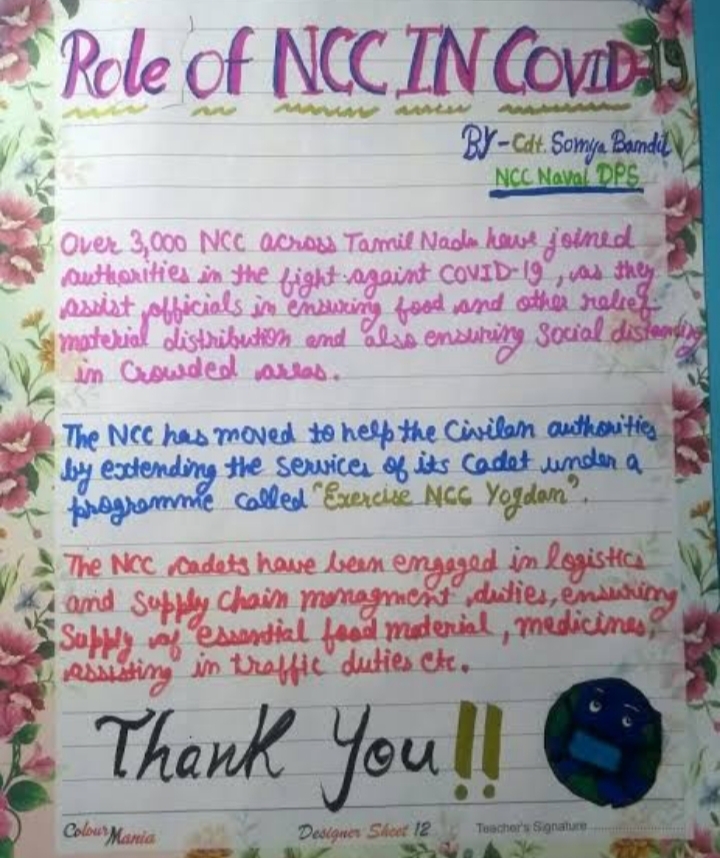 Role of NCC IN COVID-19
BY-Cdt. Somya Bamdil
NCC Naval DPS
Over 3,000 NCC across Tamil Nadu have joined
authorities in the fight againt COVID-19, as they
assist officials in ensuring food and other relief
material distribution and also ensuring Social distancing
in Crowded areas.
The NCC has moved to help the Civilan authorities
by extending the services of its Cadet under a
programme called "Exercise NCC Yogdam".
The NCC cadets have been engaged in logistics
and Supply Chain managment duties, ensuring
Supply of essential food material, medicines,
assisting in traffic duties etc.
Thank You!!
Colour Mania
Designer Sheet 12
Teacher's Signature